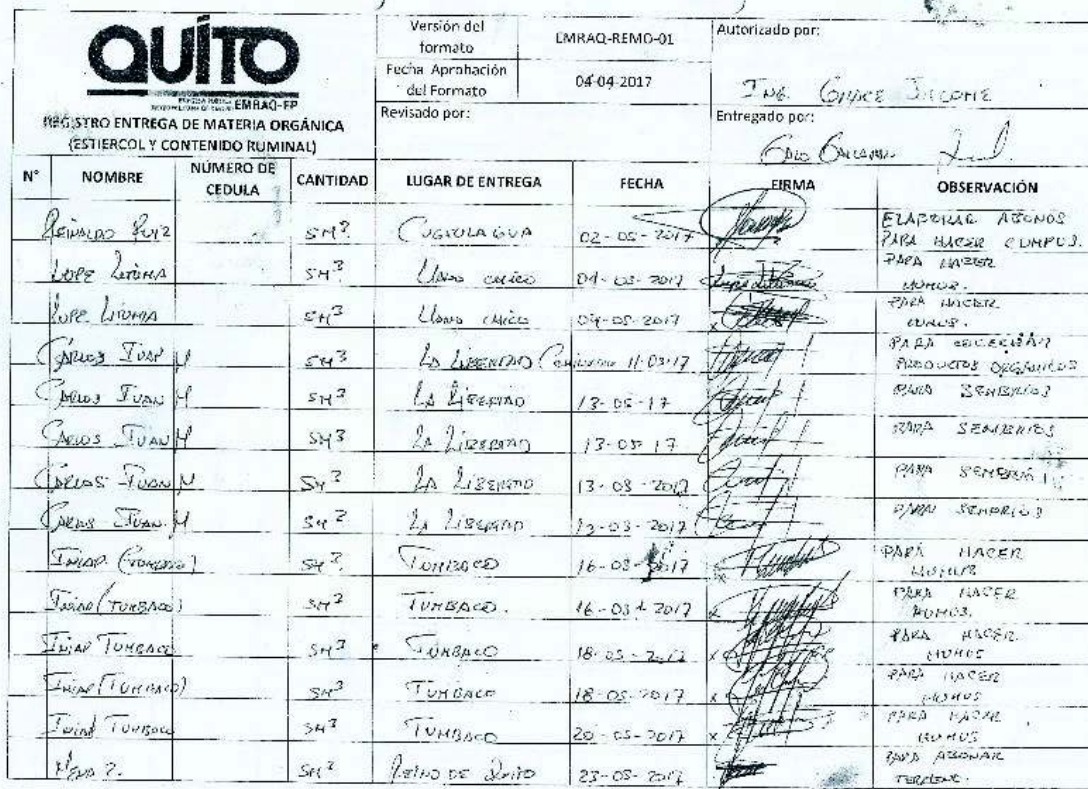 QUITO
EMRAQ-EP
REGISTRO ENTREGA DE MATERIA ORGÁNICA
(ESTIERCOL Y CONTENIDO RUMINAL)
Versión del formato EMRAQ-REMO-01
Fecha Aprobación del Formato 04-04-2017
Revisado por:
Autorizado por:
ING.
Entregado por:
N° NOMBRE NÚMERO DE CEDULA CANTIDAD LUGAR DE ENTREGA FECHA FIRMA OBSERVACIÓN
REINALDO RUIZ 5M3 02-05-2017 ELABORAR ABONOS
PARA HACER
LUPE LITUMA 5M3 LLANO CHICO 04-05-2017 PARA HACER
HUMUS.
LUPE LITUMA 5M3 LLANO CHICO 04-05-2017 PARA HACER
HUMUS.
CARLOS IUAN M 5M3 LA LIBERTAD PARA
PRODUCTOS ORGÁNICOS
CARLOS IUAN M 5M3 LA LIBERTAD 13-05-17 PARA SEMBRIOS
CARLOS IUAN M 5M3 LA LIBERTAD 13-05-17 PARA SEMBRIOS
CARLOS IUAN M 5M3 LA LIBERTAD 13-05-2017 PARA
CARLOS IUAN M 5M3 LA LIBERTAD 13-05-2017 PARA SEMBRIOS
INIAP (TUMBACO) 5M3 TUMBACO 16-05-2017 PARA HACER
HUMUS
INIAP (TUMBACO) 5M3 TUMBACO. 16-05-2017 PARA HACER
HUMUS.
INIAP TUMBACO 5M3 TUMBACO 18-05-2017 PARA HACER
HUMUS
INIAP (TUMBACO) 5M3 TUMBACO 18-05-2017 PARA HACER
HUMUS
INIAP TUMBACO 5M3 TUMBACO 20-05-2017 PARA HACER
HUMUS
5M3 REINO DE QUITO 23-05-2017 PARA ABONAR
TERRENO.